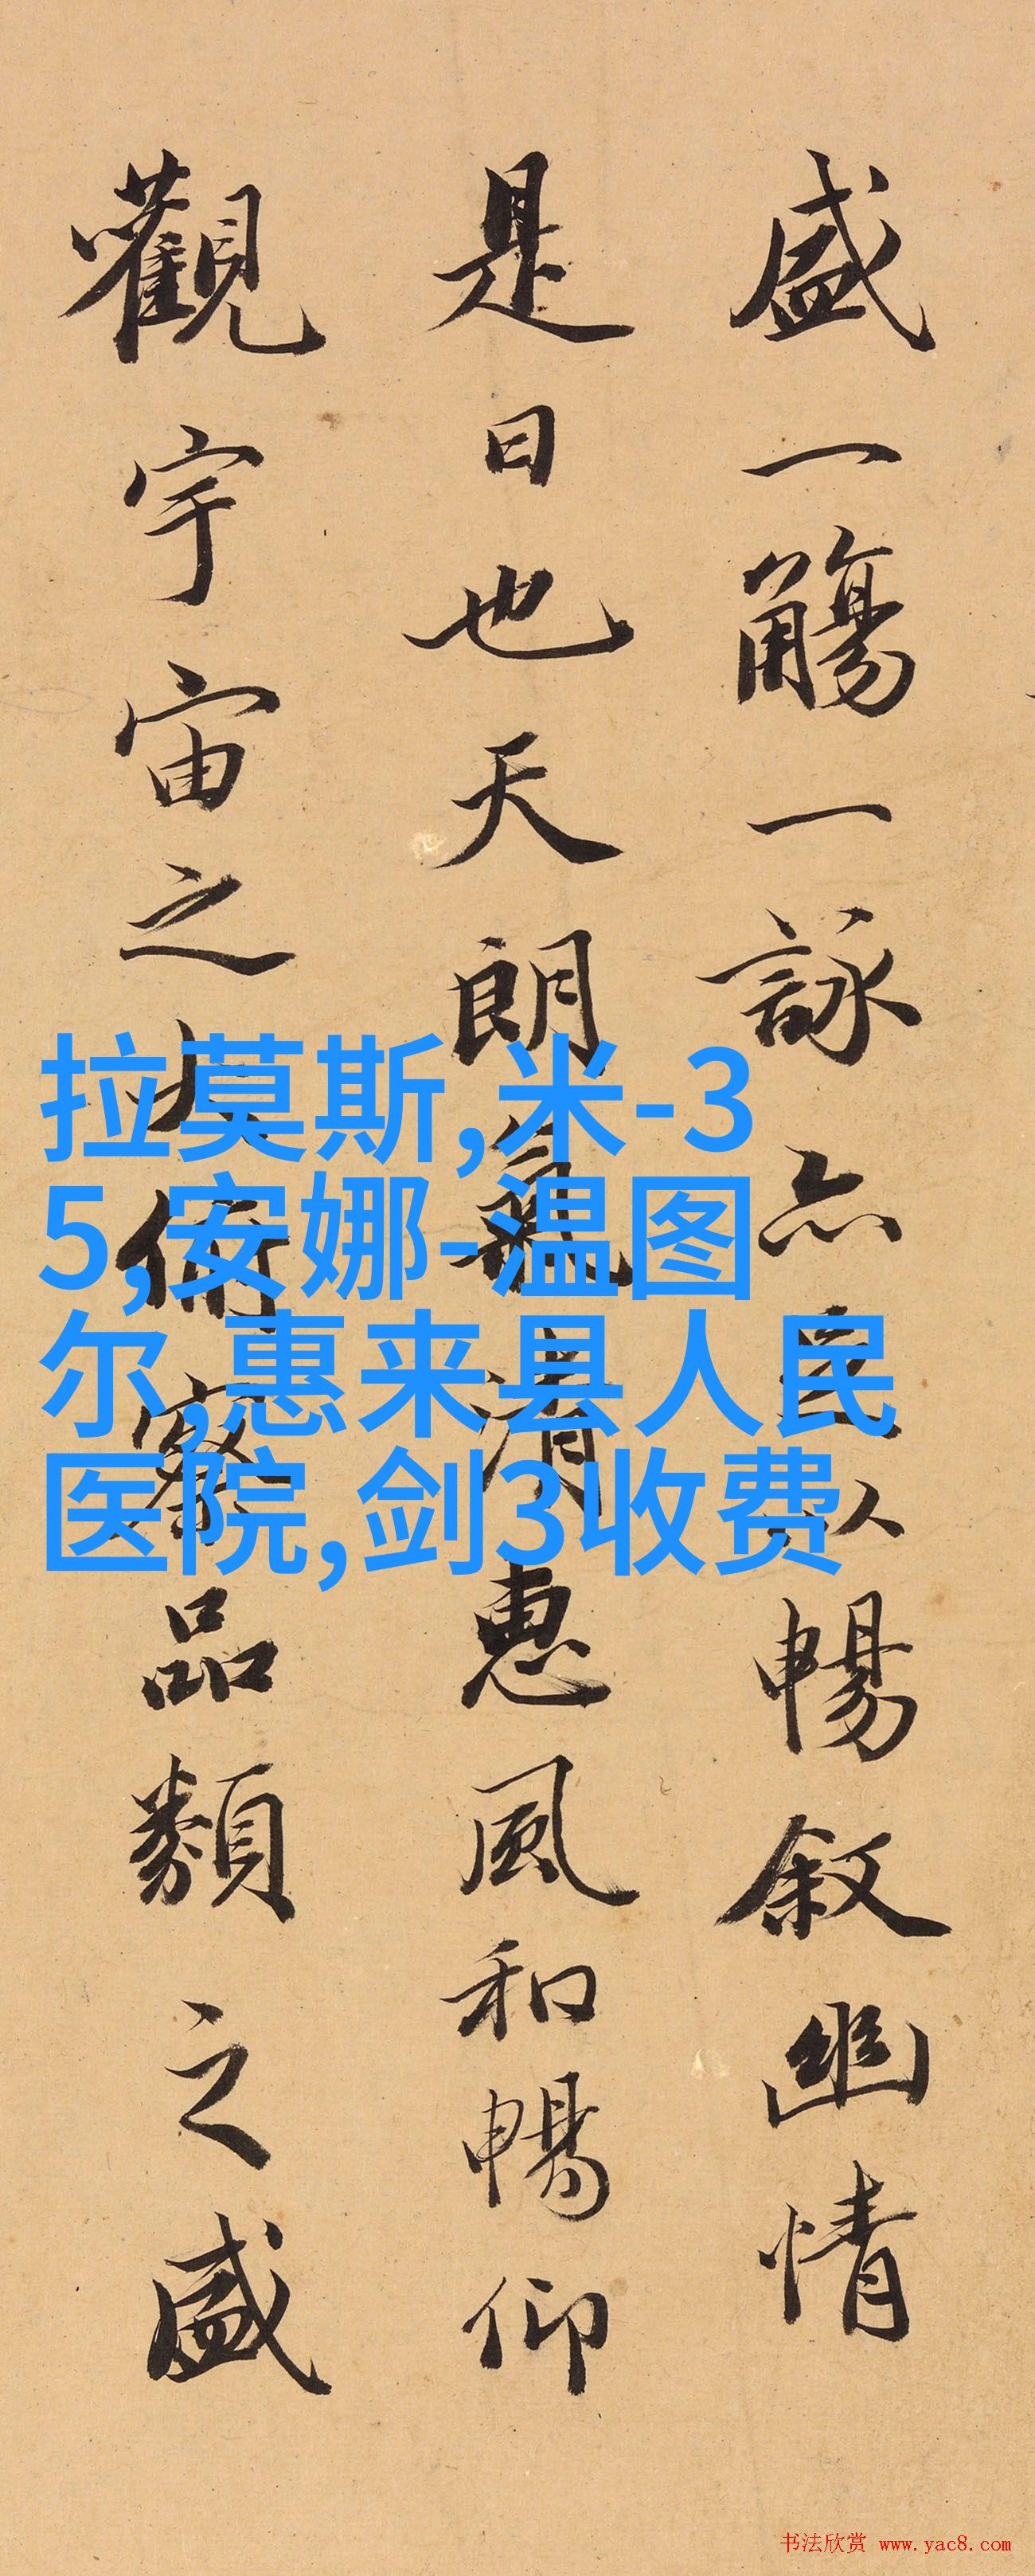 盛一觴一詠亦足以暢叙幽情
是日也天朗氣清惠風和暢仰
觀宇宙之大俯察品類之盛
拉莫斯,米-3
5,安娜-温图
尔,惠来县人民
医院,剑3收费
书法欣赏 www.yac8.com